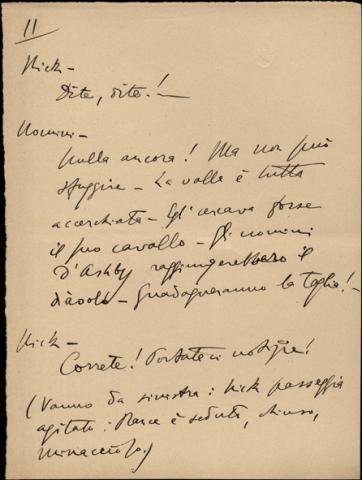 11
Nick –
Dite, dite! –
Uomini –
Nulla ancora! Ma non può
sfuggire – La valle è tutta
accerchiata – Gl'
il suo cavallo – Gli uomini
D'Ashby raggiungerebbero il
diàvolo – Guadagneranno la taglia! –
Nick –
Correte! Portateci notizie!
(Vanno da sinistra: Nick passeggia
agitato: Rance è seduto, chiuso,
minaccioso.)